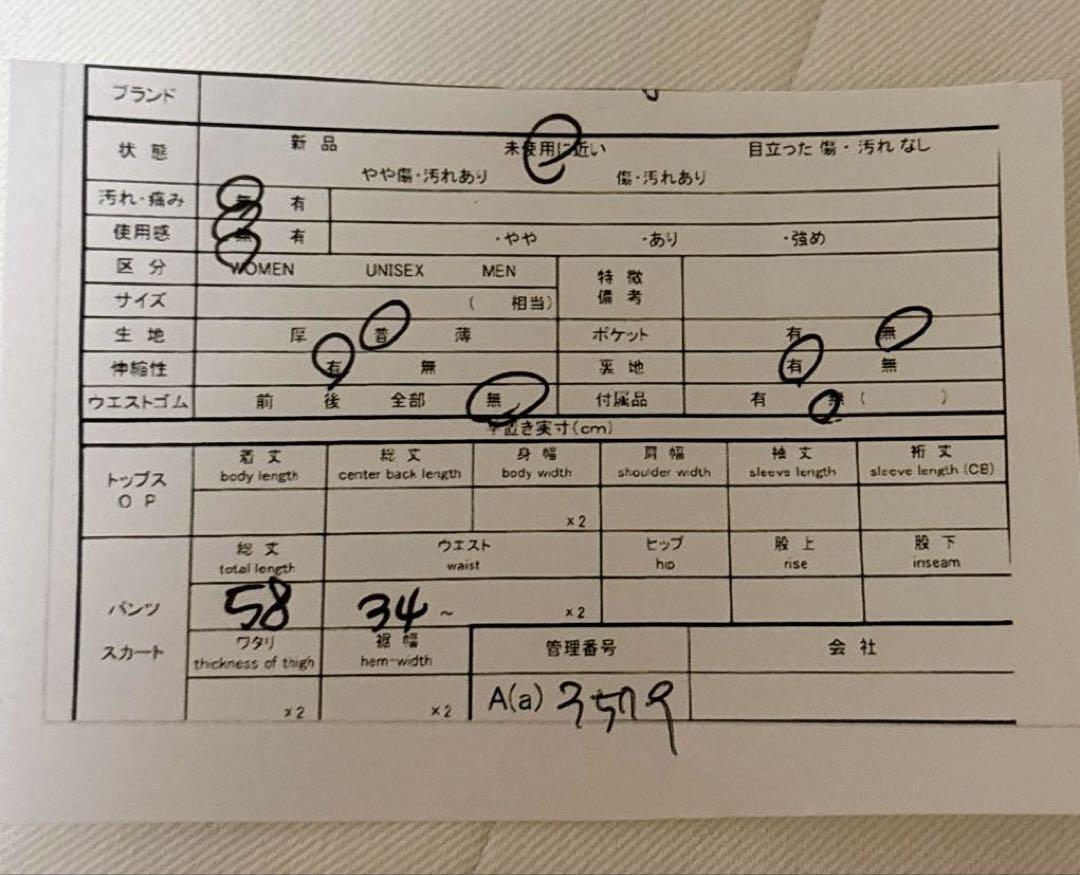 ブランド
状態 新品 未使用に近い 目立った傷・汚れなし
やや傷・汚れあり 傷・汚れあり
汚れ・痛み 無 有
使用感 無 有 ・やや ・あり ・強め
区分 WOMEN UNISEX MEN 特徴
備考
サイズ ( 相当)
生地 厚 普 薄 ポケット 有 無
伸縮性 有 無 裏地 有 無
ウエストゴム 前 後 全部 無 付属品 有 無 ( )
平置き実寸(cm)
トップス
OP
着丈 総丈 身幅 肩幅 袖丈 裄丈
body length center back length body width shoulder width sleeve length sleeve length (CB)
×2
総丈 ウエスト ヒップ 股上 股下
total length waist hip rise inseam
パンツ 58 34 ~ ×2
スカート ワタリ 裾幅 管理番号 会社
thickness of thigh hem-width
×2 ×2 A(a)